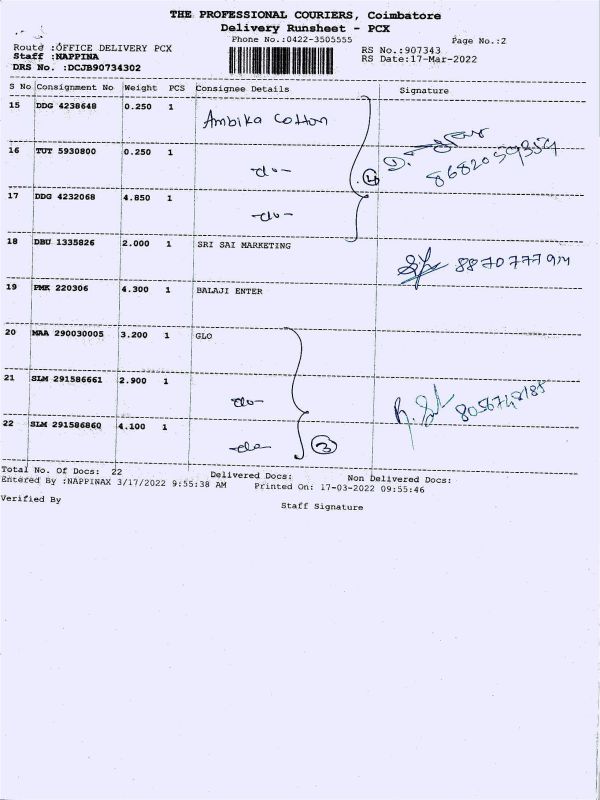 THE PROFESSIONAL COURIERS, Coimbatore
Delivery Runsheet - PCX
Phone No.:0422-3505555
Page No.:2
Route :OFFICE DELIVERY PCX
RS No.:907343
Staff :NAPPINA
RS Date:17-Mar-2022
DRS No. :DCJB90734302
S No Consignment No Weight PCS Consignee Details Signature
15 DDG 4238648 0.250 1 Ambika Cotton
16 TUT 5930800 0.250 1 -do- 4
8682059354
17 DDG 4232068 4.850 1 -do-
18 DBU 1335826 2.000 1 SRI SAI MARKETING
19 PMK 220306 4.300 1 BALAJI ENTER
20 MAA 290030005 3.200 1 GLO
21 SLM 291586661 2.900 1 -do-
8056748185
22 SLM 291586860 4.100 1 -do- 3
Total No. Of Docs: 22 Delivered Docs: Non Delivered Docs:
Entered By :NAPPINAX 3/17/2022 9:55:38 AM Printed On: 17-03-2022 09:55:46
Verified By Staff Signature